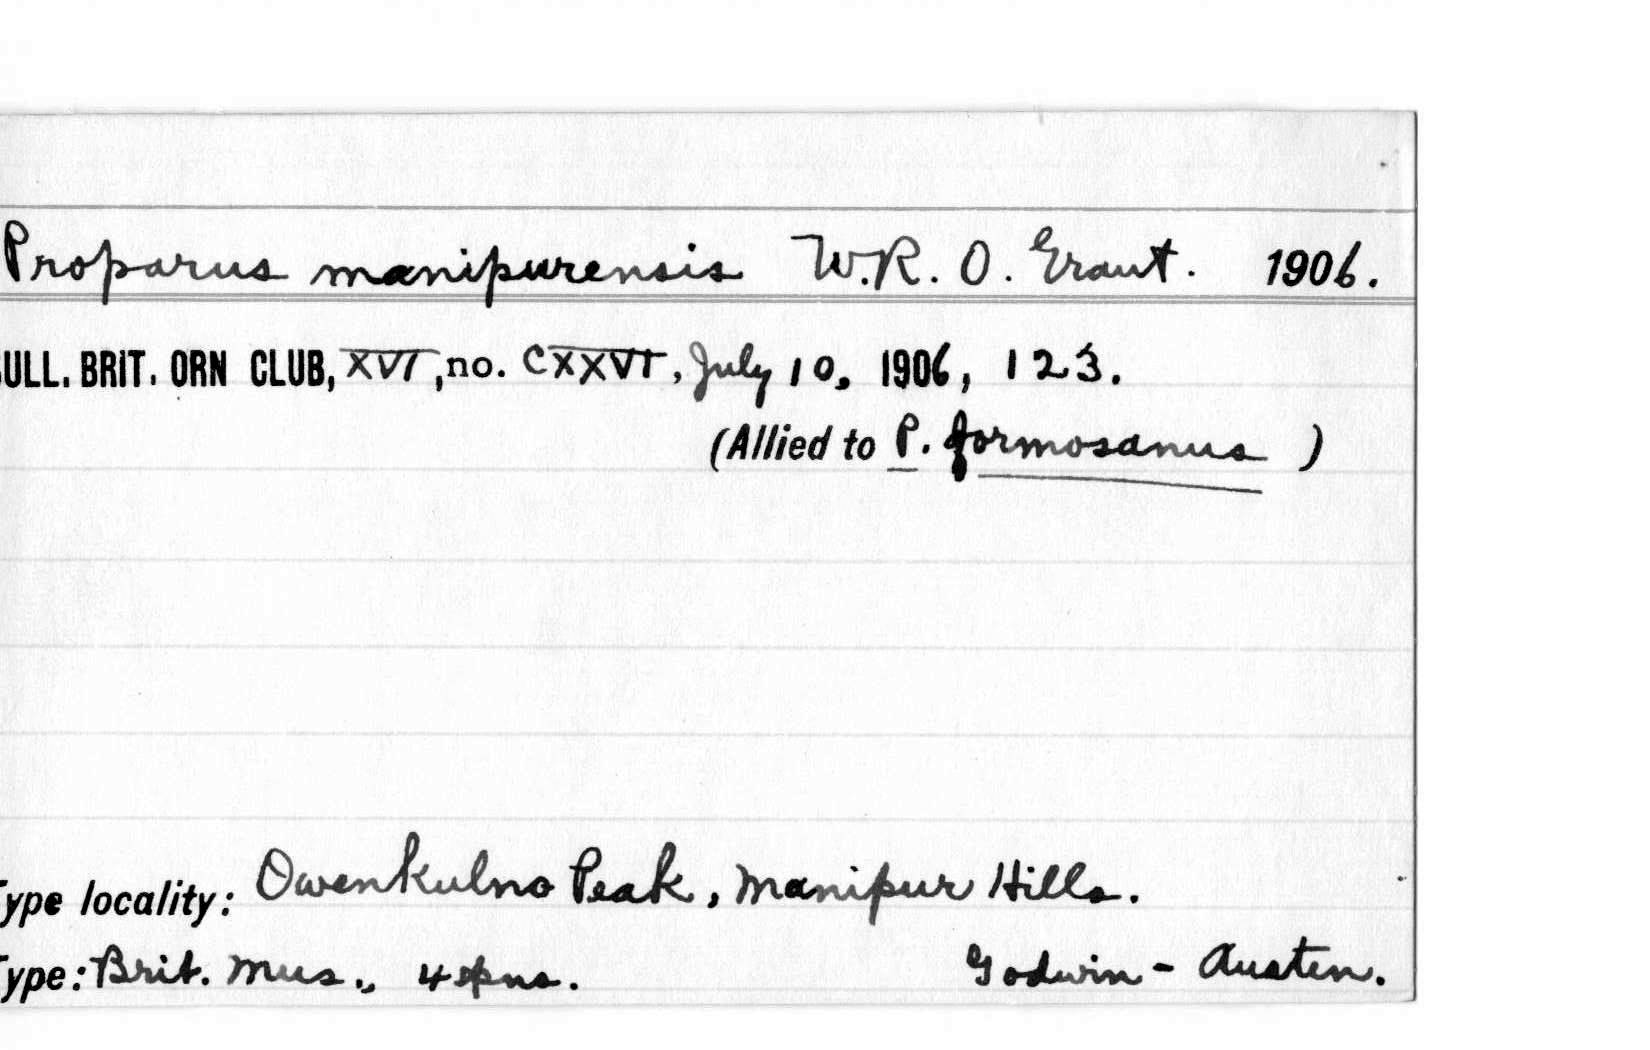 Proparus manipurensis W.R. O. Grant. 1906.
ULL. BRIT. ORN CLUB, XVI, no. CXXVI, July 10, 1906, 123.
(Allied to P. formosanus )
Type locality: Owenkulno Peak, Manipur Hills.
Type: Brit. Mus., 4 spns. Godwin - Austen.